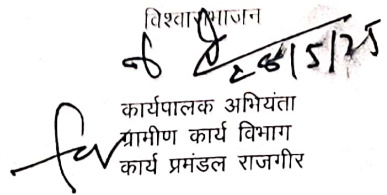 विश्वासभाजन
28/5/25
कार्यपालक अभियंता
ग्रामीण कार्य विभाग
कार्य प्रमंडल राजगीर